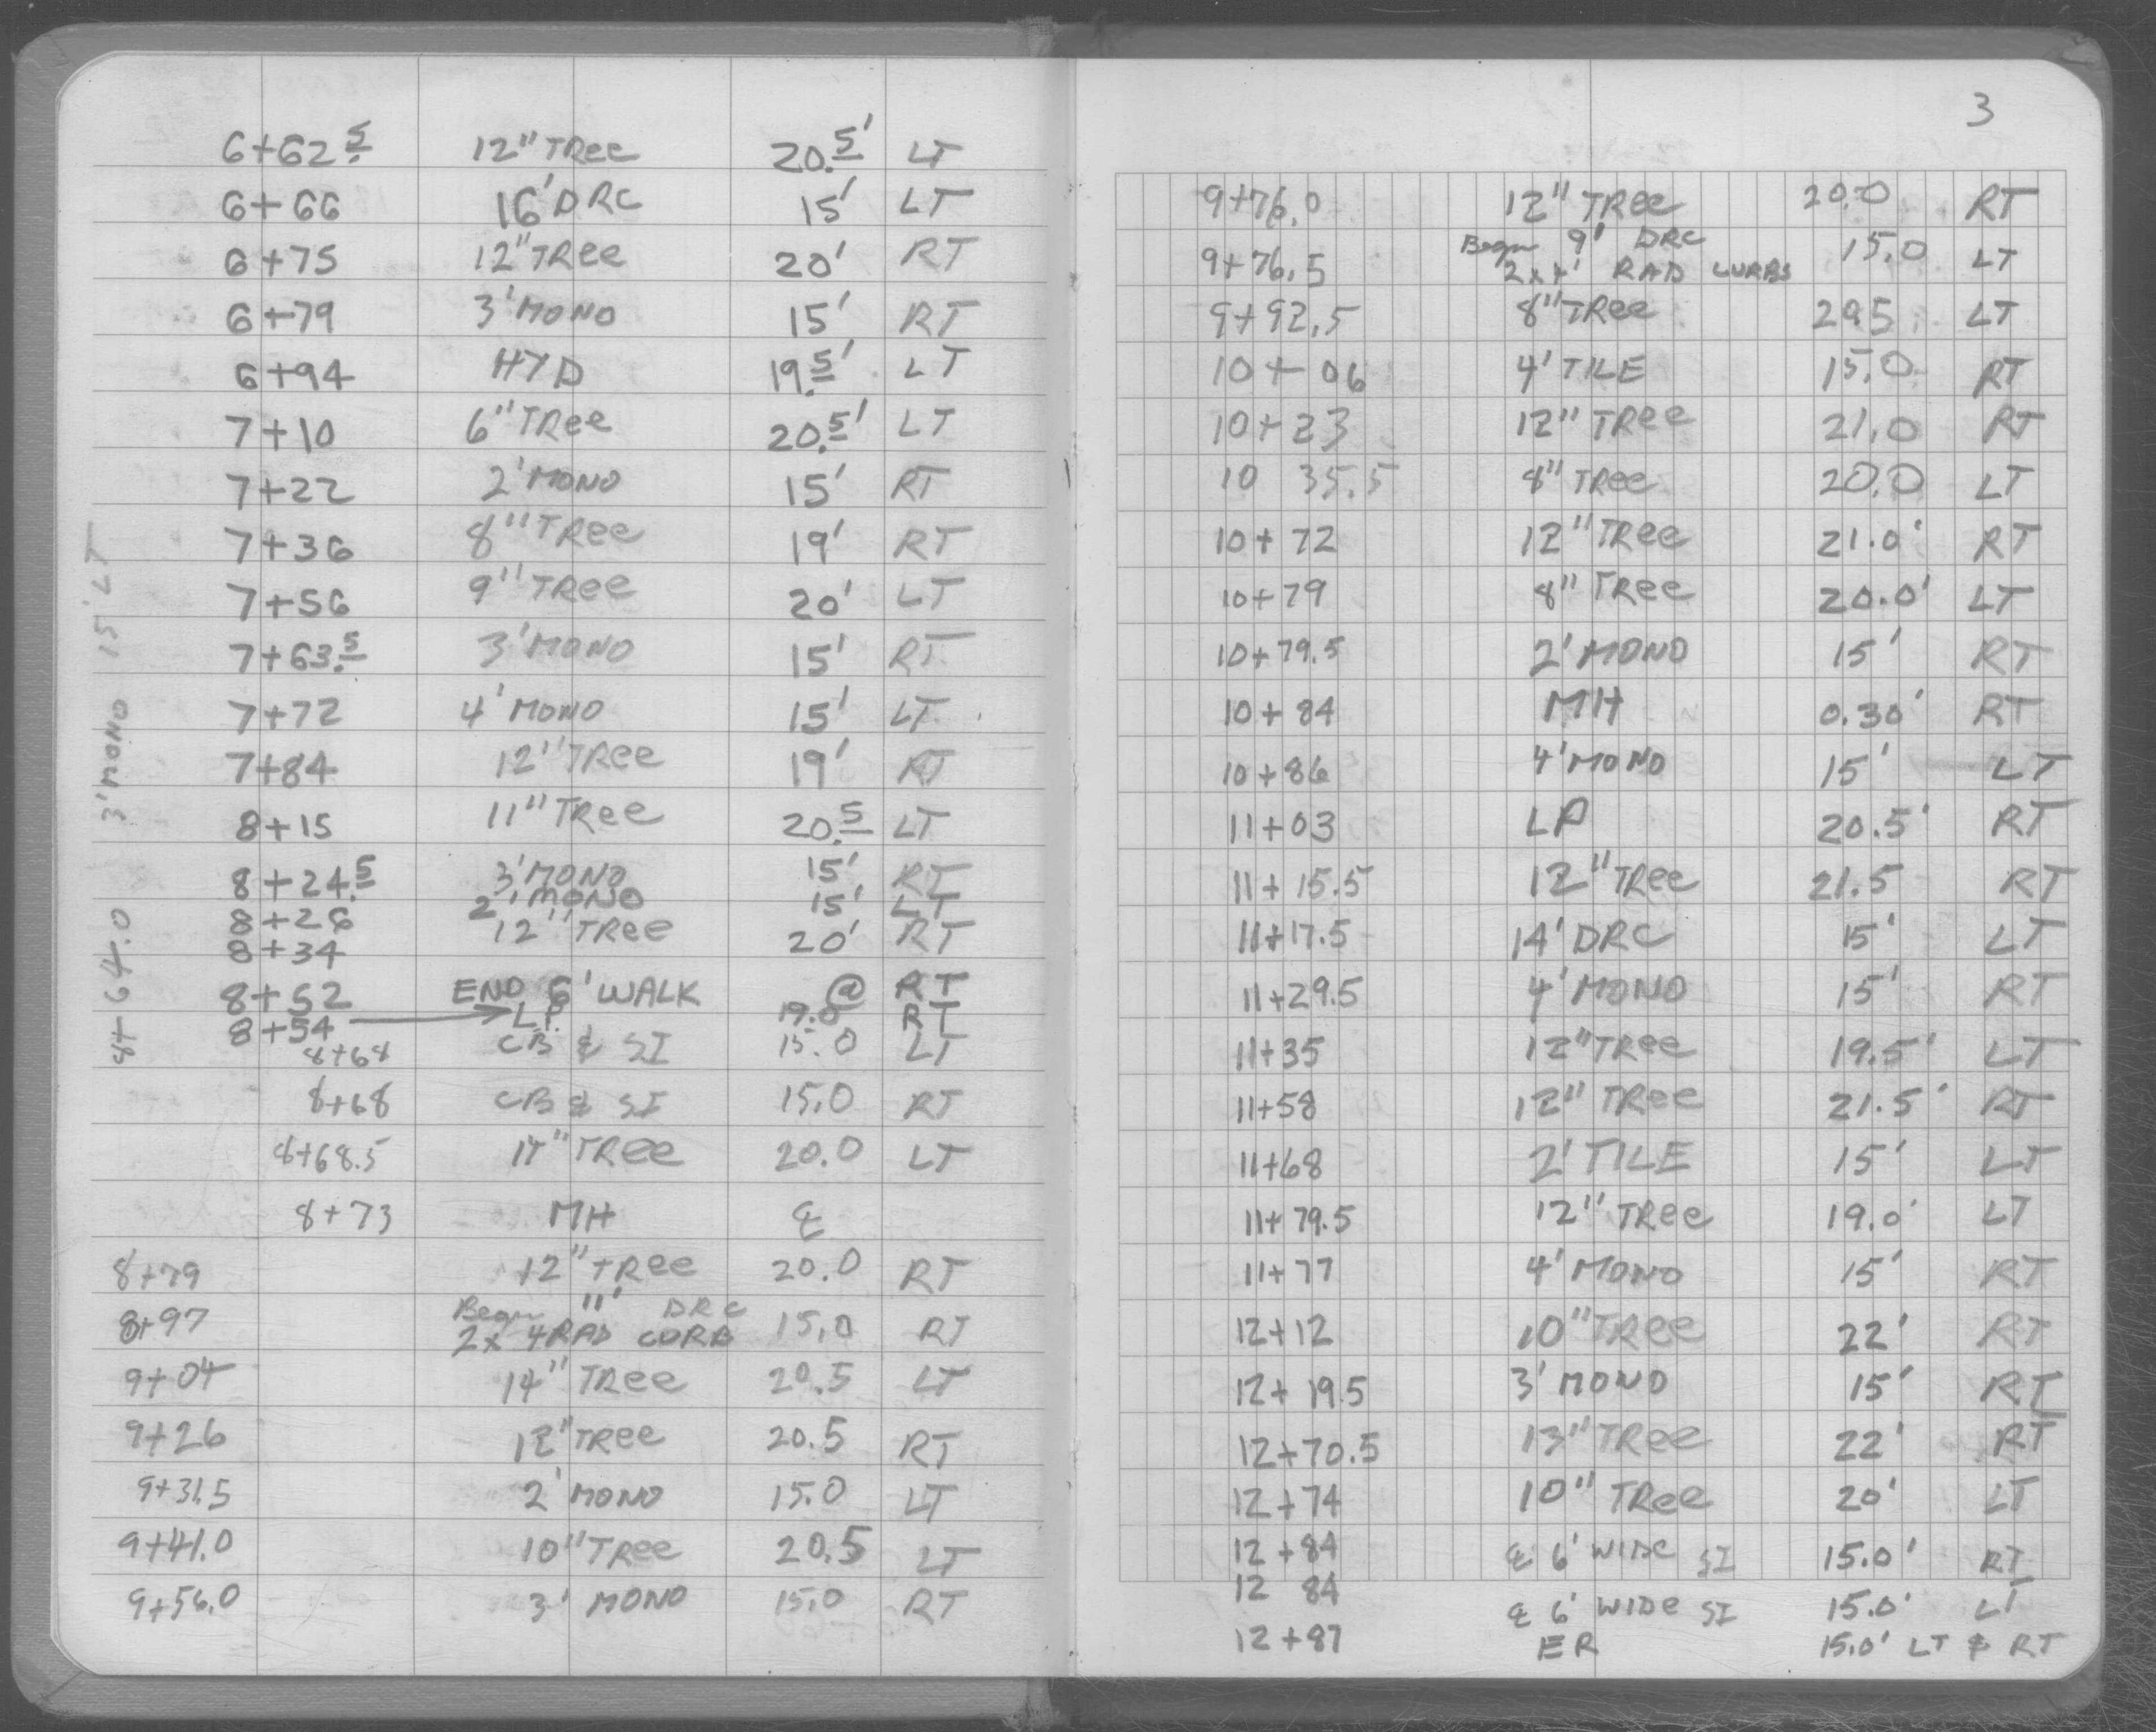 6+62.5 12" TRee 20.5' LT
6+66 16' DRC 15' LT
6+75 12" TRee 20' RT
6+79 3' MONO 15' RT
6+94 HYD 19.5' LT
7+10 6" TRee 20.5' LT
7+22 2' MONO 15' RT
7+36 8" TRee 19' RT
7+56 9" TRee 20' LT
7+63.5 3' MONO 15' RT
7+72 4' MONO 15' LT
7+84 12" TRee 19' RT
8+15 11" TRee 20.5 LT
8+24.5 3' MONO 15' RT
8+26 2' MONO 15' LT
8+34 12" TRee 20' RT
8+52 END 6' WALK @ RT
8+54 LP. 19.0 RT
8+68 CB & SI 15.0 LT
8+68 CB & SI 15.0 RT
8+68.5 TRee 20.0 LT
8+73 MH ℄
8+79 12" TRee 20.0 RT
8+97 Begin 11' DRC
2x 4 RAD CURB 15.0 RT
9+04 14" TRee 20.5 LT
9+26 12" TRee 20.5 RT
9+31.5 2' MONO 15.0 LT
9+41.0 10" TRee 20.5 LT
9+56.0 3' MONO 15.0 RT
8+64.0 3' MONO 15' LT
3
9+76.0 12" TRee 20.0 RT
9+76.5 Begin 9' DRC 15.0 LT
2x4' RAD CURBS
9+92.5 8" TRee LT
10+06 4' TILE 15.0 RT
10+23 12" TRee 21.0 RT
10 35.5 8" TRee 20.0 LT
10+72 12" TRee 21.0' RT
10+79 8" TRee 20.0' LT
10+79.5 2' MONO 15' RT
10+84 MH 0.30' RT
10+86 4' MONO 15' LT
11+03 LP 20.5' RT
11+15.5 12" TRee 21.5 RT
11+17.5 14' DRC 15' LT
11+29.5 4' MONO 15' RT
11+35 12" TRee 19.5' LT
11+58 12" TRee 21.5' RT
11+68 2' TILE 15' LT
11+79.5 12" TRee 19.0' LT
11+77 4' MONO 15' RT
12+12 10" TRee 22' RT
12+19.5 3' MONO 15' RT
12+70.5 13" TRee 22' RT
12+74 10" TRee 20' LT
12+84 ℄ 6' WIDE SI 15.0' RT
12 84 ℄ 6' WIDE SI 15.0' LT
12+87 ER 15.0' LT & RT